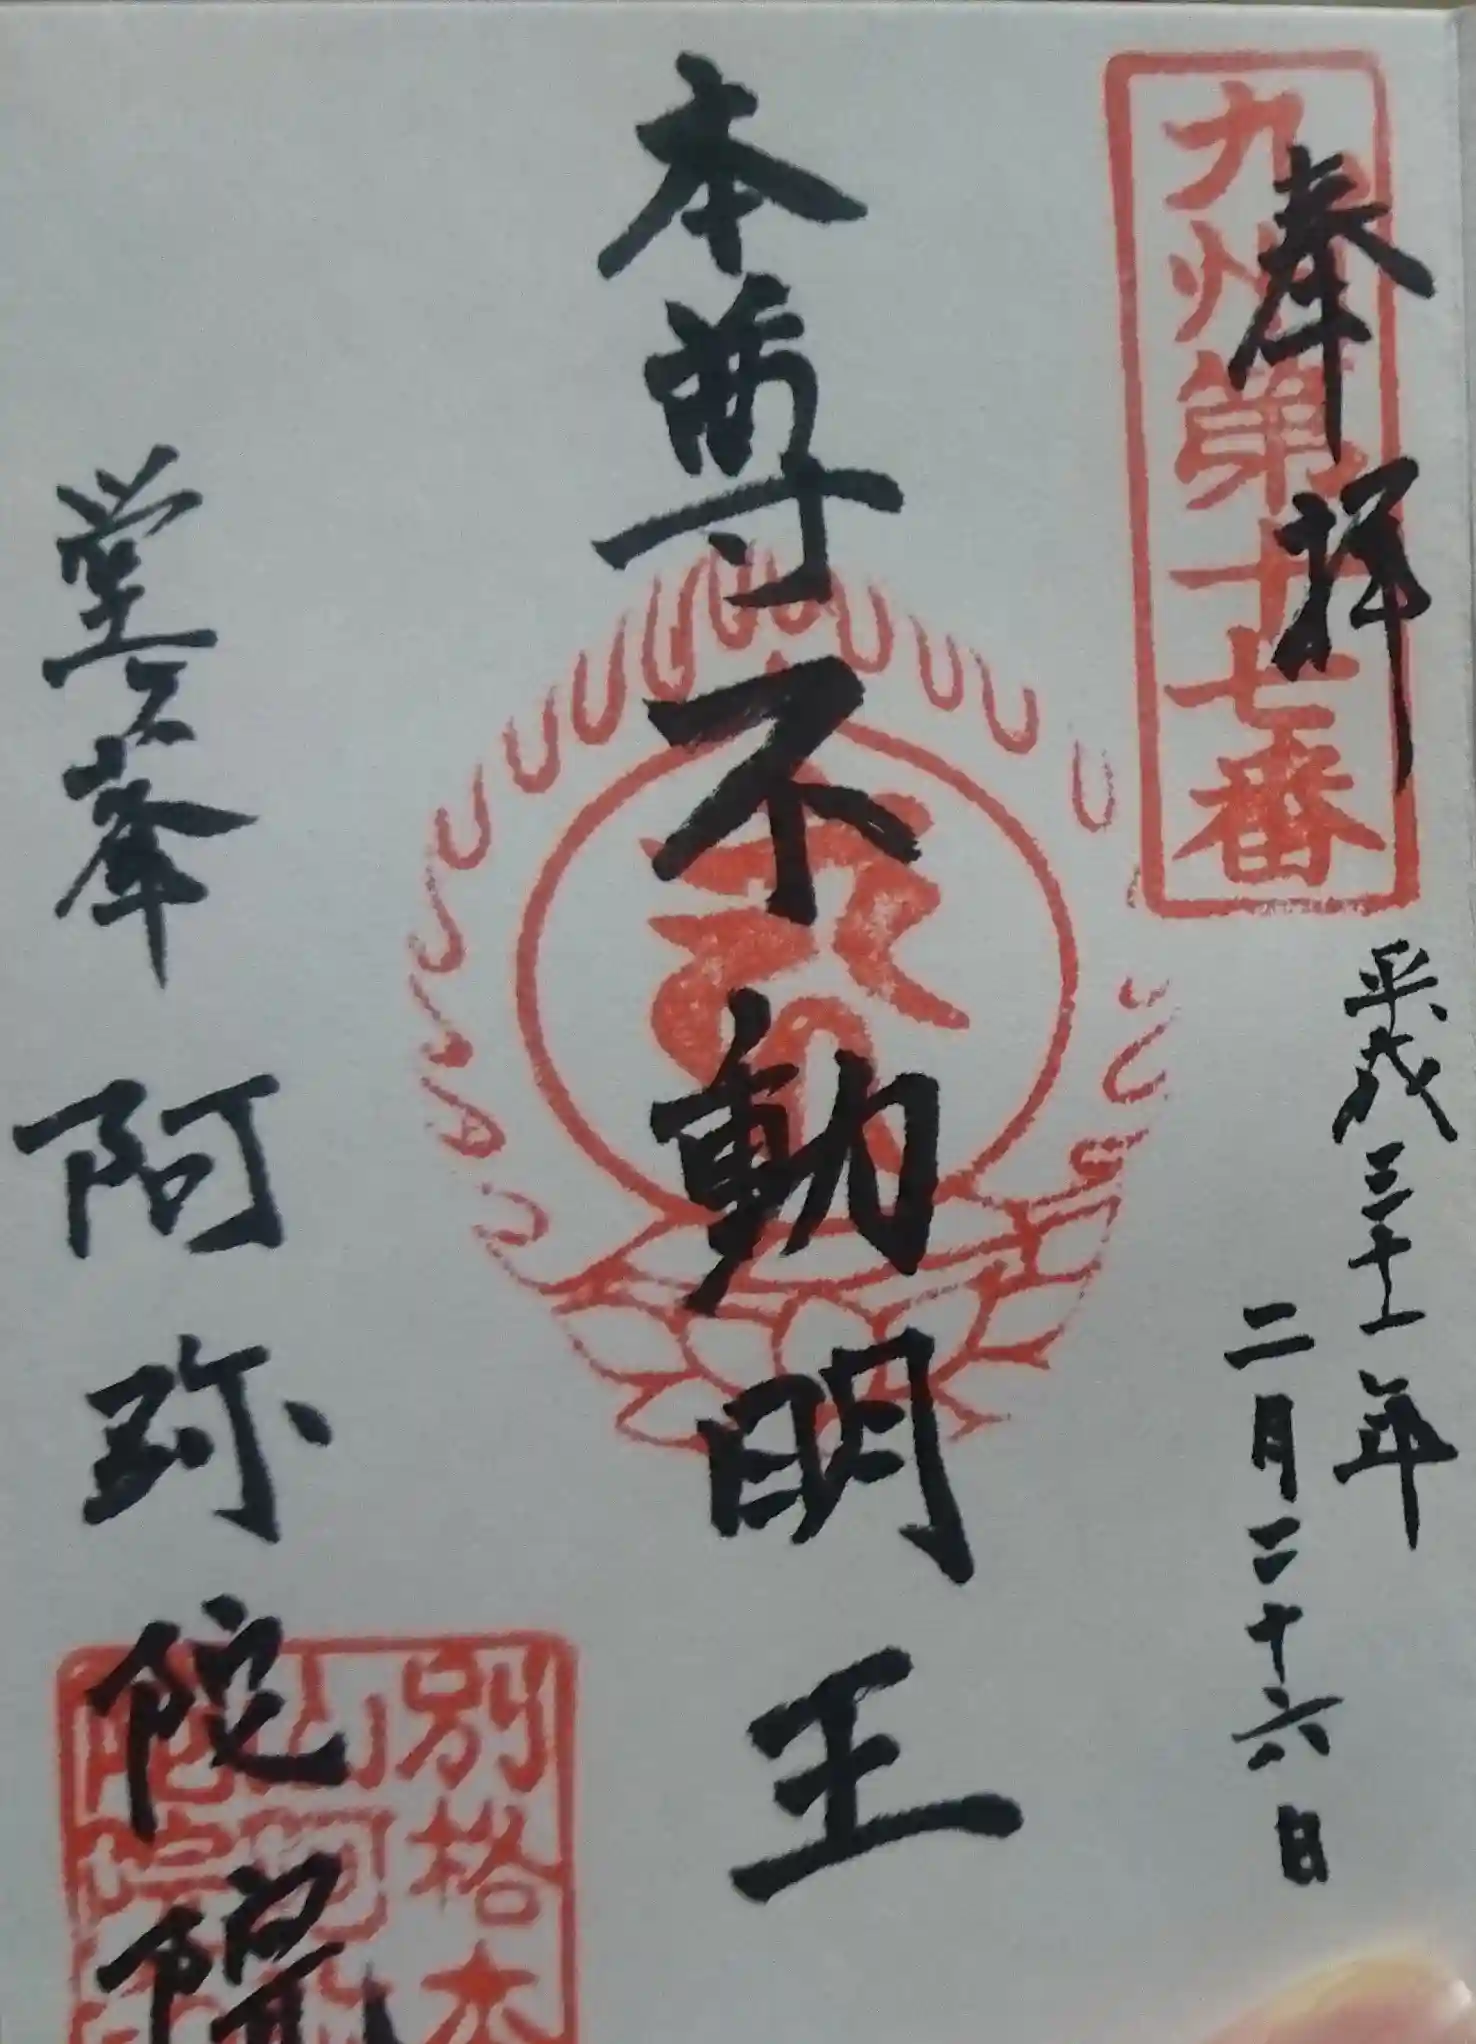 九州第十七番
奉拝
平成三十一年
二月二十六日
本尊不動明王
堂ヶ峯 阿弥陀院
別格本
山阿
陀院